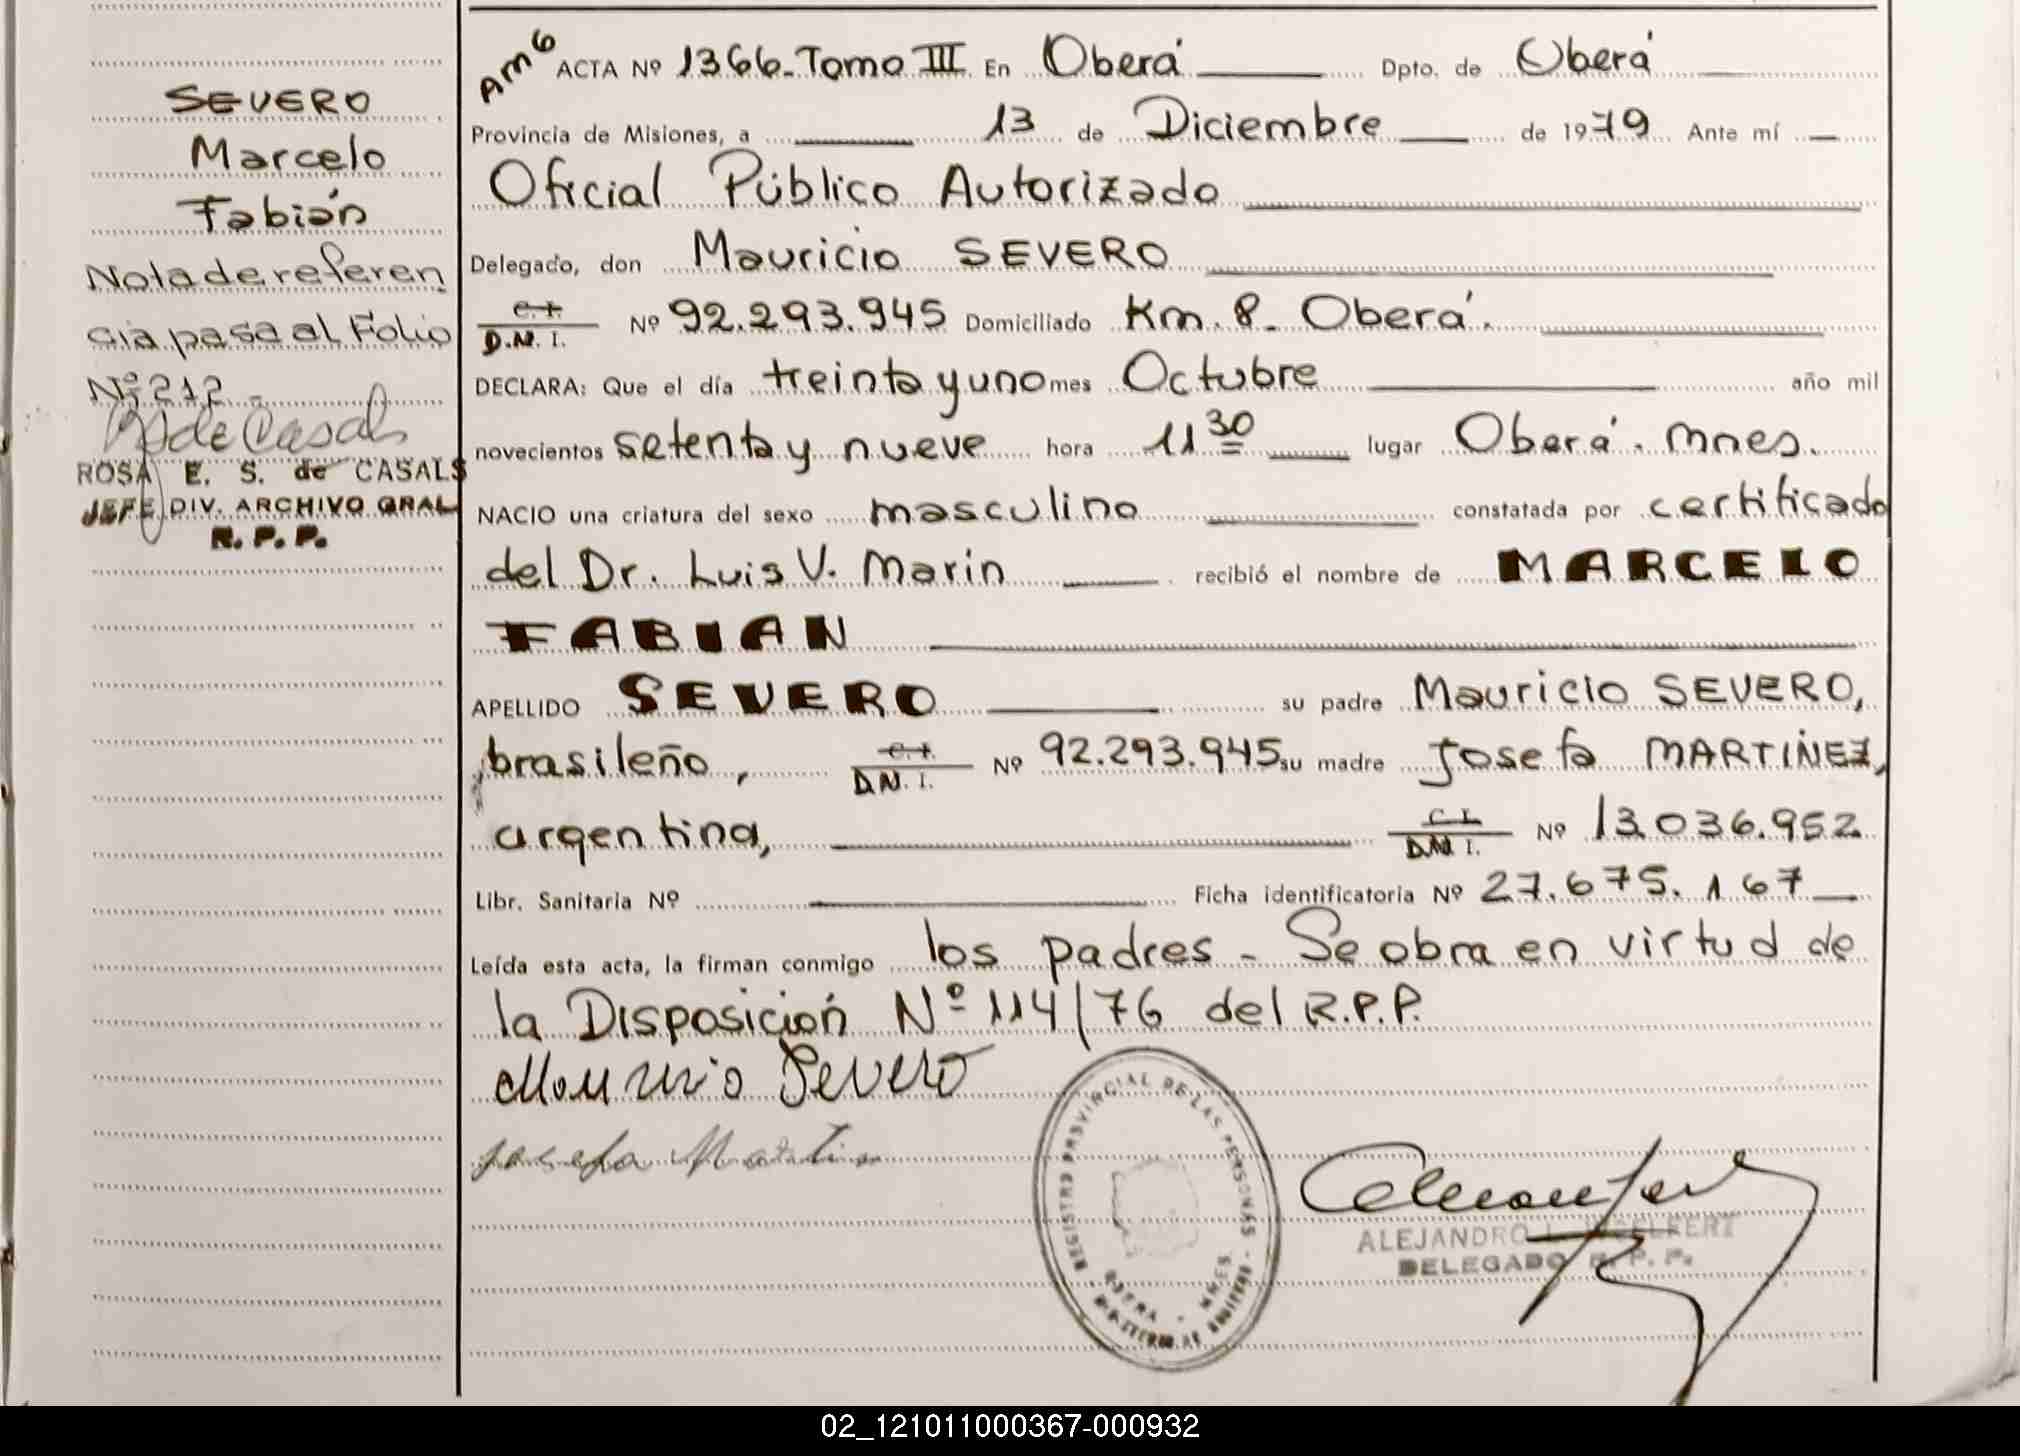 SEVERO
Marcelo
Fabián
Nota de referen
cia pasa al Folio
Nº 212 -
ROSA E. S. de CASALS
JEFE DIV. ARCHIVO GRAL
R. P. P.
AM6 ACTA Nº 1366-Tomo III En Oberá Dpto. de Oberá
Provincia de Misiones, a 13 de Diciembre de 1979 Ante mí
Oficial Público Autorizado
Delegado, don Mauricio SEVERO
C.I. D.N.I. Nº 92.293.945 Domiciliado Km. 8- Oberá.
DECLARA: Que el día treinta y uno mes Octubre año mil
novecientos setenta y nueve hora 11 30 lugar Oberá. Mnes.
NACIO una criatura del sexo masculino constatada por certificado
del Dr. Luis V. Marin recibió el nombre de MARCELO
FABIAN
APELLIDO SEVERO su padre Mauricio SEVERO,
brasileño, C.I. D.N.I. Nº 92.293.945 su madre Josefa MARTINEZ,
argentina, C.I. D.N.I. Nº 13.036.952
Libr. Sanitaria Nº Ficha identificatoria Nº 27.675.167
Leída esta acta, la firman conmigo los padres - Se obra en virtud de
la Disposición Nº 114/76 del R.P.P.
Mauricio Severo
Josefa
REGISTRO PROVINCIAL DE LAS PERSONAS
OBERA - MNES
ALEJANDRO
DELEGADO R. P. P.
02_121011000367-000932